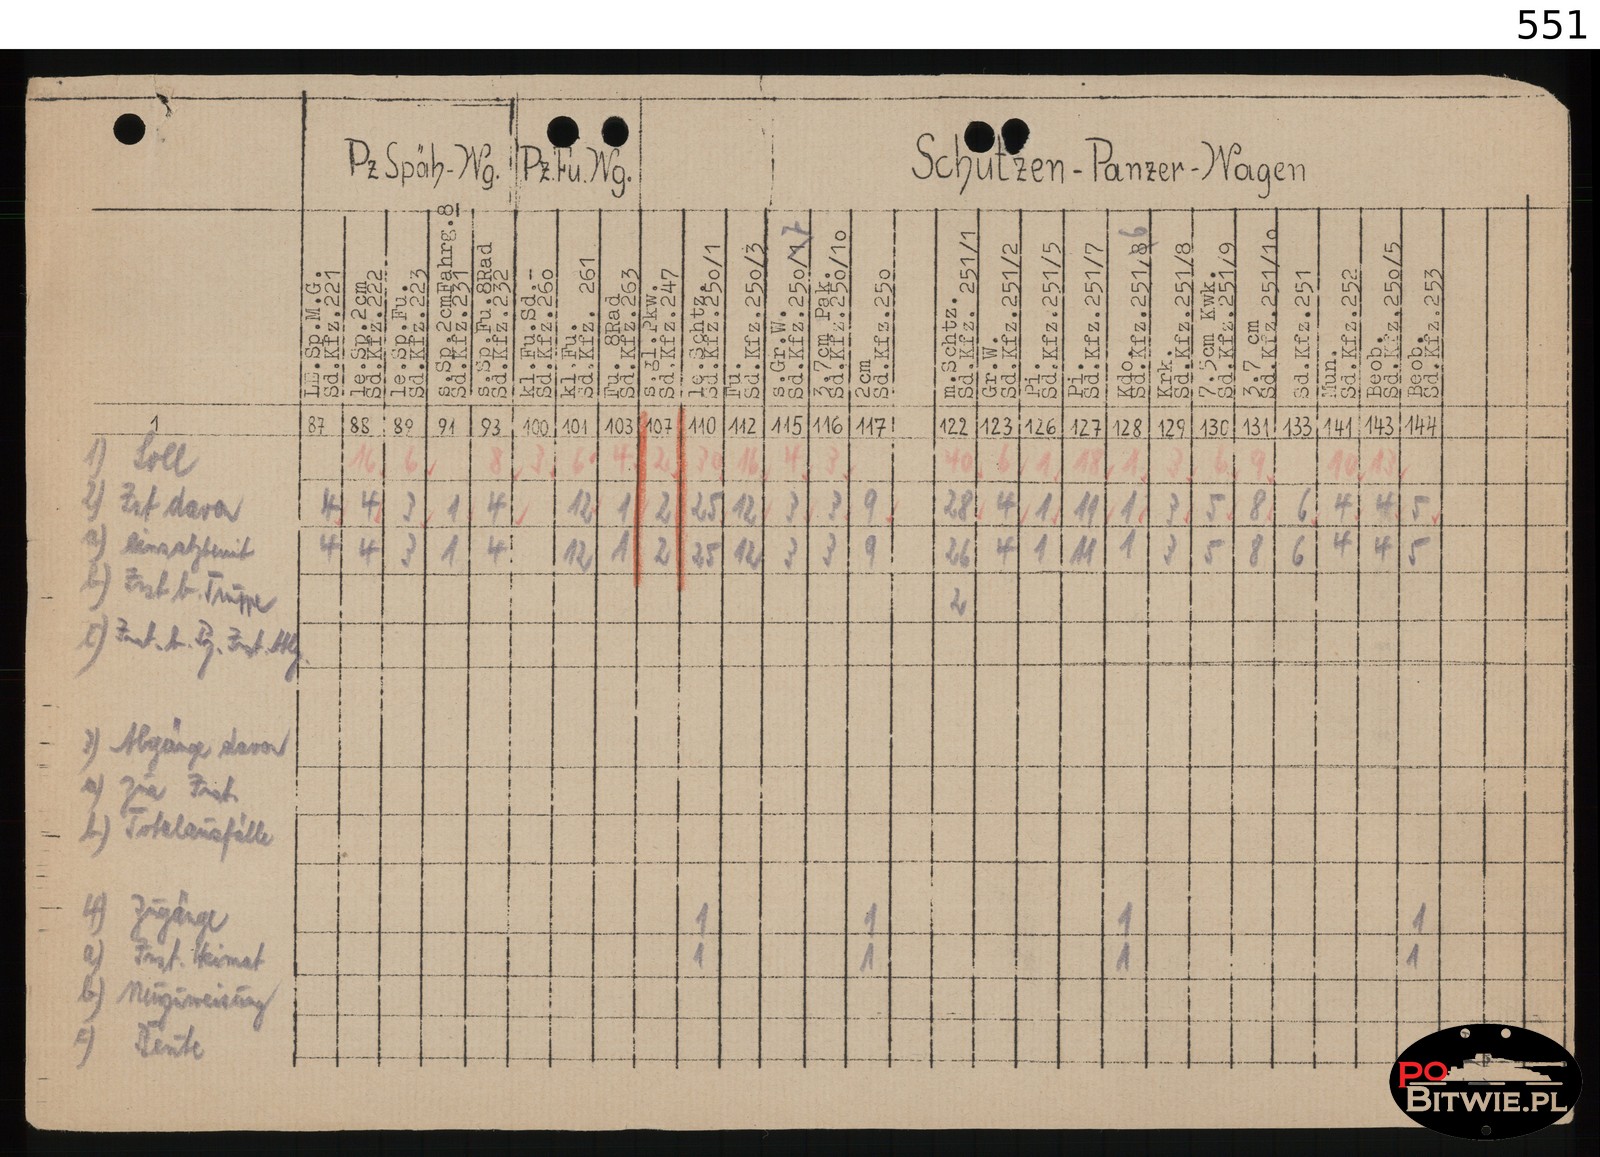 551
Pz Späh-Wg. Pz.Fu.Wg. Schützen-Panzer-Wagen
LE.Sp.M.G. Sd.Kfz.221
le.Sp.2cm Sd.Kfz.222
le.Sp.Fu. Sd.Kfz.223
s.Sp.2cmFahrg.8 Sd.Kfz.231
s.Sp.Fu.8Rad Sd.Kfz.232
kl.Fu.Sd.- Sd.Kfz.260
kl.Fu. Sd.Kfz. 261
Fu. 8Rad Sd.Kfz.263
s.gl.Pkw. Sd.Kfz.247
le.Schtz. Sd.Kfz.250/1
Fu. Sd.Kfz.250/3
s.Gr.W. Sd.Kfz.250/7
3.7cm Pak. Sd.Kfz.250/10
2cm Sd.Kfz.250
m.Schtz. Sd.Kfz. 251/1
Gr.W. Sd.Kfz.251/2
Pi. Sd.Kfz.251/5
Pi. Sd.Kfz.251/7
Kdo. Sd.Kfz.251/6
Krk. Sd.Kfz.251/8
7.5cm Kwk. Sd.Kfz.251/9
3.7 cm Sd.Kfz.251/10
Sd.Kfz.251
Mun. Sd.Kfz.252
Beob. Sd.Kfz.250/5
Beob. Sd.Kfz.253
1 87 88 89 91 93 100 101 103 107 110 112 115 116 117 122 123 126 127 128 129 130 131 133 141 143 144
1) Soll 16 6 8 3 6 4 2 30 16 4 3 40 6 1 18 1 3 6 9 10 13
2) Ist davon 4 4 3 1 4 12 1 2 25 12 3 3 9 28 4 1 11 1 3 5 8 6 4 4 5
a) einsatzbereit 4 4 3 1 4 12 1 2 25 12 3 3 9 26 4 1 11 1 3 5 8 6 4 4 5
b) Inst. b. Truppe 2
c) Inst. b. Pz. Inst. Abt.
3) Abgänge davon
a) zur Inst.
b) Totalausfälle
4) Zugänge 1 1 1 1
a) Inst. Heimat 1 1 1 1
b) Neuzuweisung
c) Beute
PO
BITWIE.PL